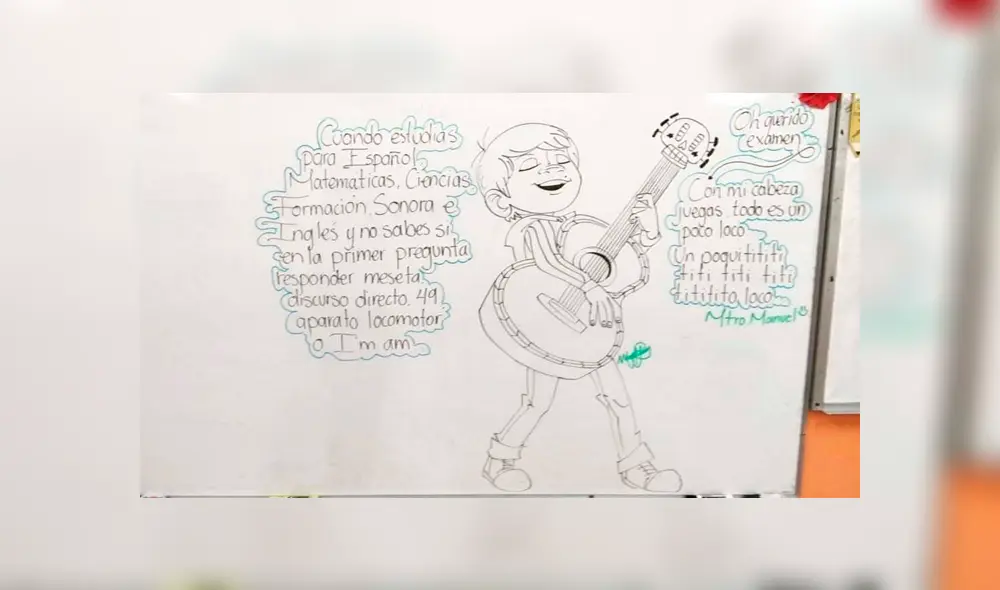 Cuando estudias
para Español,
Matematicas, Ciencias,
Formación, Sonora e
Ingles y no sabes si
en la primer pregunta
responder meseta,
discurso directo, 49,
aparato locomotor
o I'm am
Oh querido
examen
Con mi cabeza
juegas, todo es un
poco loco
Un poquititititi
titi titi titi
titititito, loco
Mtro. Manuel